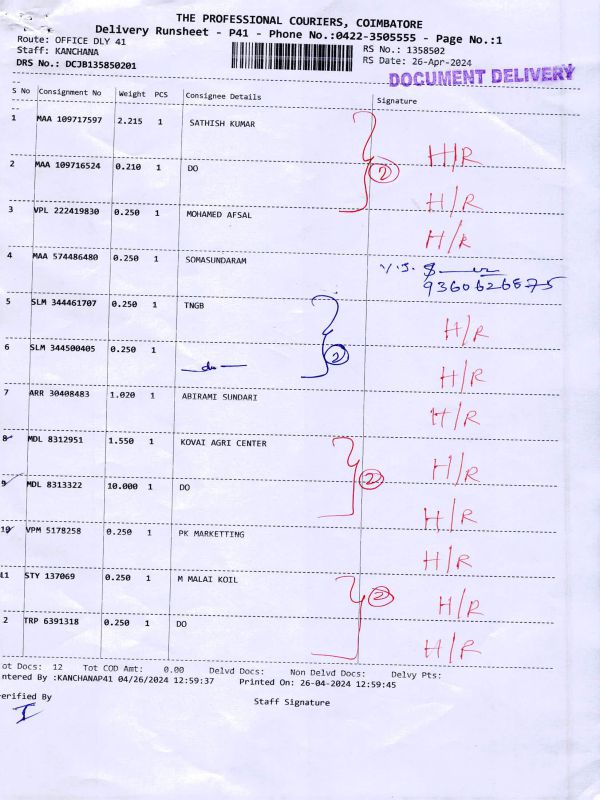 THE PROFESSIONAL COURIERS, COIMBATORE
Delivery Runsheet - P41 - Phone No.:0422-3505555 - Page No.:1
Route: OFFICE DLY 41 RS No.: 1358502
Staff: KANCHANA RS Date: 26-Apr-2024
DRS No.: DCJB135850201
DOCUMENT DELIVERY
S No Consignment No Weight PCS Consignee Details Signature
1 MAA 109717597 2.215 1 SATHISH KUMAR H/R
2 MAA 109716524 0.210 1 DO 2 H/R
3 VPL 222419830 0.250 1 MOHAMED AFSAL H/R
4 MAA 574486480 0.250 1 SOMASUNDARAM
5 SLM 344461707 0.250 1 TNGB H/R
6 SLM 344500405 0.250 1 — do — 2 H/R
7 ARR 30408483 1.020 1 ABIRAMI SUNDARI H/R
8 MDL 8312951 1.550 1 KOVAI AGRI CENTER H/R
9 MDL 8313322 10.000 1 DO 2 H/R
10 VPM 5178258 0.250 1 PK MARKETTING H/R
11 STY 137069 0.250 1 M MALAI KOIL 2 H/R
2 TRP 6391318 0.250 1 DO H/R
ot Docs: 12 Tot COD Amt: 0.00 Delvd Docs: Non Delvd Docs: Delvy Pts:
ntered By :KANCHANAP41 04/26/2024 12:59:37 Printed On: 26-04-2024 12:59:45
erified By Staff Signature